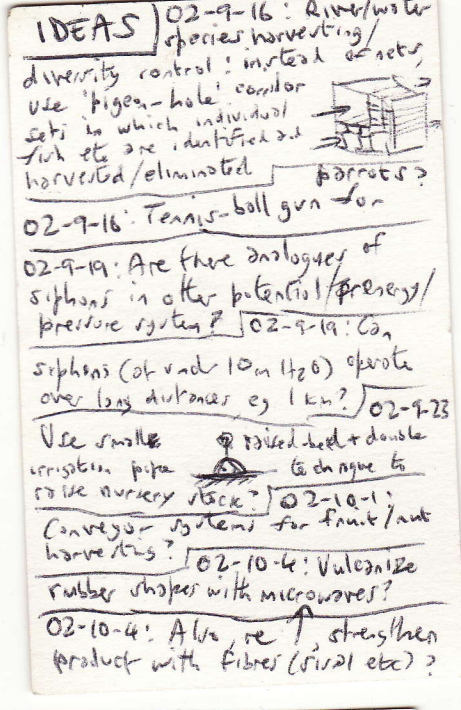 IDEAS
02-9-16: River/water
species harvesting/
diversity control: instead of nets,
use 'pigeon-hole' corridor
sets in which individual
fish etc are identified and
harvested/eliminated
02-9-16: Tennis-ball gun for
parrots?
02-9-19: Are there analogues of
siphons in other potential/energy/
pressure system?
02-9-19: Can
siphons (of under 10m H2O) operate
over long distances eg 1 km?
02-9-23
Use smaller
irrigation pipe
raised-bed + double
technique to
raise nursery stock?
02-10-1:
Conveyor systems for fruit/nut
harvesting?
02-10-4: Vulcanize
rubber shapes with microwaves?
02-10-4: Also, re ↑, strengthen
product with fibres (sisal etc)?